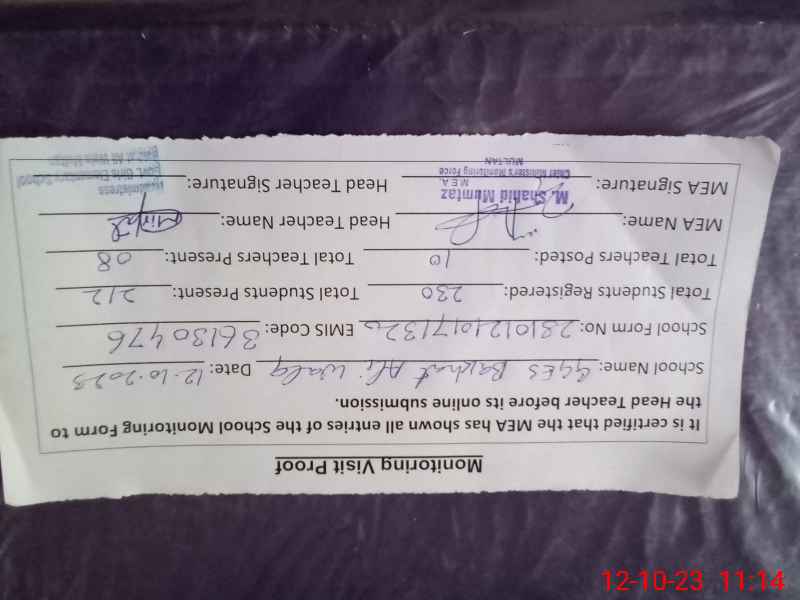 Monitoring Visit Proof
It is certified that the MEA has shown all entries of the School Monitoring Form to
the Head Teacher before its online submission.
School Name: GGES Bakhat Ali Wala Date: 12-10-2023
School Form No: EMIS Code: 36130476
Total Students Registered: 230 Total Students Present: 212
Total Teachers Posted: 10 Total Teachers Present: 08
MEA Name: Head Teacher Name:
MEA Signature: Head Teacher Signature:
M. Shahid Mumtaz
M.E.A.
Chief Minister's Monitoring Force
MULTAN
Headmistress
Govt. Girls Elementary School
12-10-23 11:14